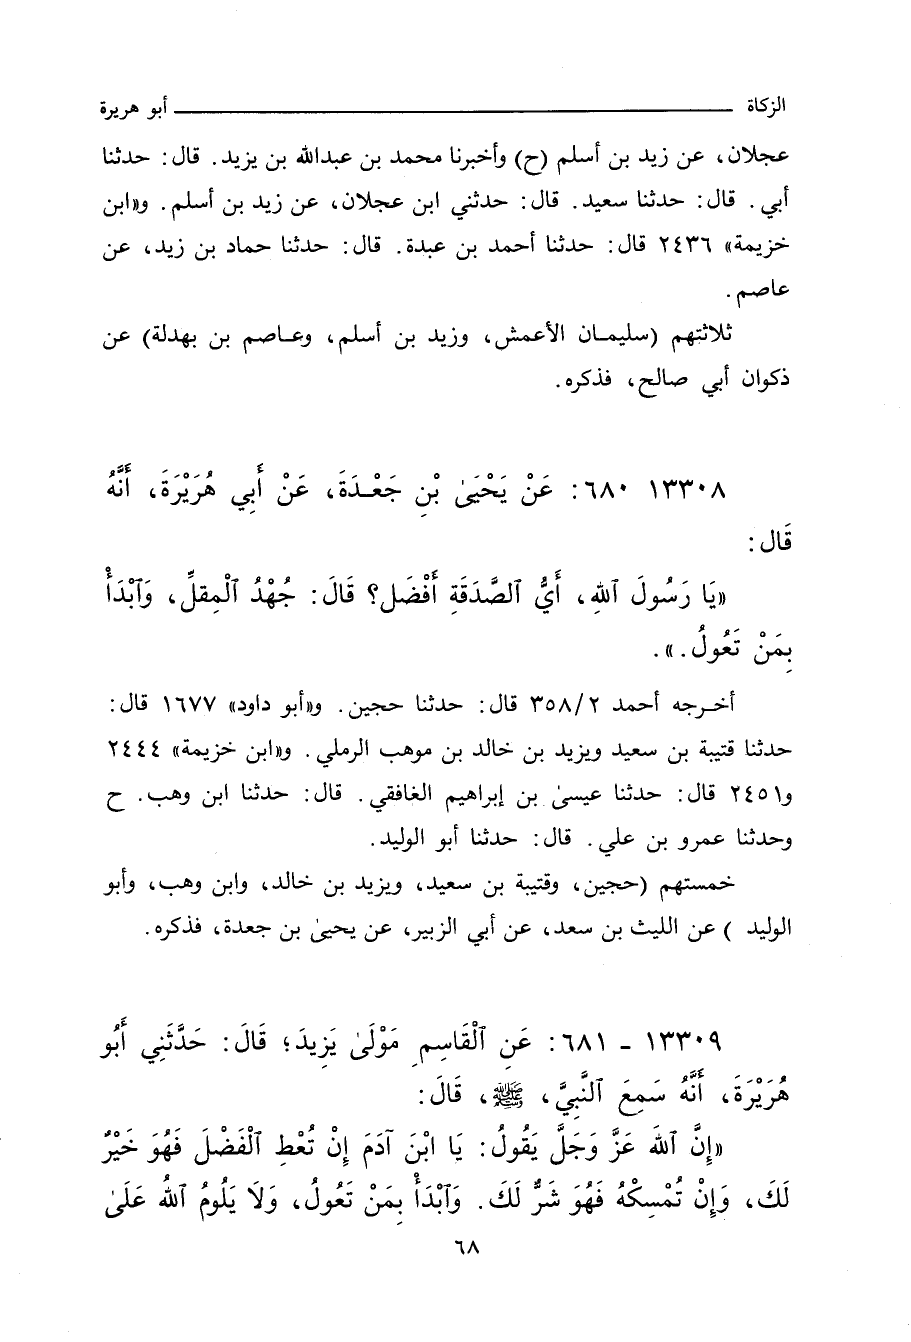 الزكاة ــــــــــــــــــــــــــــــــــــ أبو هريرة
عجلان، عن زيد بن أسلم (ح) وأخبرنا محمد بن عبدالله بن يزيد. قال: حدثنا
أبي. قال: حدثنا سعيد. قال: حدثني ابن عجلان، عن زيد بن أسلم. و«ابن
خزيمة» ٢٤٣٦ قال: حدثنا أحمد بن عبدة. قال: حدثنا حماد بن زيد، عن
عاصم.
ثلاثتهم (سليمـان الأعمش، وزيد بن أسلم، وعـاصم بن بهدلة) عن
ذكوان أبي صالح، فذكره.
١٣٣٠٨ ٦٨٠: عَنْ يَحْيَىٰ بْنِ جَعْـدَةَ، عَنْ أَبِي هُرَيْرَةَ، أَنَّهُ
قَال:
«يَا رَسُولَ ٱللهِ، أَيُّ ٱلصَّدَقَةِ أَفْضَل؟ قَالَ: جُهْدُ ٱلْمِقلِّ، وَٱبْدَأْ
بِمَنْ تَعُولُ.».
أخـرجه أحمد ٣٥٨/٢ قال: حدثنا حجين. و«أبو داود» ١٦٧٧ قال:
حدثنا قتيبة بن سعيد ويزيد بن خالد بن موهب الرملي. و«ابن خزيمة» ٢٤٤٤
و٢٤٥١ قال: حدثنا عيسىٰ بن إبراهيم الغافقي. قال: حدثنا ابن وهب. ح
وحدثنا عمرو بن علي. قال: حدثنا أبو الوليد.
خمستهم (حجين، وقتيبة بن سعيد، ويزيد بن خالد، وابن وهب، وأبو
الوليد ) عن الليث بن سعد، عن أبي الزبير، عن يحيىٰ بن جعدة، فذكره.
١٣٣٠٩ ـ ٦٨١: عَنِ ٱلْقَاسِمِ مَوْلَىٰ يَزِيدَ؛ قَالَ: حَدَّثَنِي أَبُو
هُرَيْرَةَ، أَنَّهُ سَمِعَ ٱلنَّبِيَّ، ﷺ، قَالَ:
«إِنَّ ٱللهَ عَزَّ وَجَلَّ يَقُولُ: يَا ابْنَ آدَمَ إِنْ تُعْطِ ٱلْفَضْلَ فَهُوَ خَيْرٌ
لَكَ، وَإِنْ تُمْسِكْهُ فَهُوَ شَرٌّ لَكَ. وَٱبْدَأْ بِمَنْ تَعُولُ، وَلَا يَلُومُ ٱللهُ عَلَىٰ
٦٨